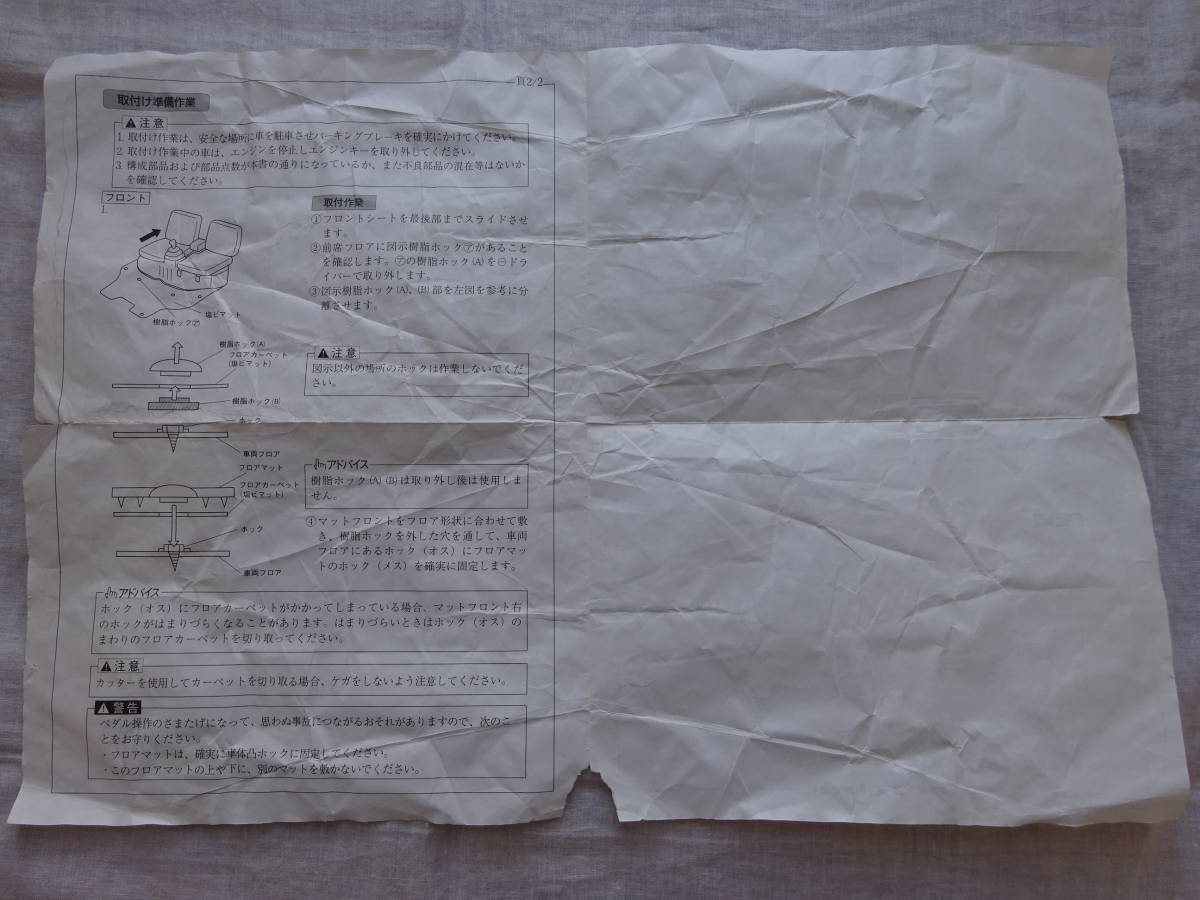 頁2/2
取付け準備作業
注意
1. 取付け作業は、安全な場所に車を駐車させパーキングブレーキを確実にかけてください。
2. 取付け作業中の車は、エンジンを停止しエンジンキーを取り外してください。
3. 構成部品および部品点数が本書の通りになっているか、また不良部品の混在等はないか
を確認してください。
フロント
1.
塩ビマット
樹脂ホック㋐
取付作業
①フロントシートを最後部までスライドさせ
ます。
②前席フロアに図示樹脂ホック㋐があること
を確認します。㋐の樹脂ホック(A)を⊖ドラ
イバーで取り外します。
③図示樹脂ホック(A)、(B)部を左図を参考に分
離させます。
樹脂ホック(A)
フロアカーペット
(塩ビマット)
樹脂ホック(B)
ホック
車両フロア
注意
図示以外の場所のホックは作業しないでくだ
さい。
フロアマット
フロアカーペット
(塩ビマット)
ホック
車両フロア
アドバイス
樹脂ホック(A)(B)は取り外し後は使用しま
せん。
④マットフロントをフロア形状に合わせて敷
き、樹脂ホックを外した穴を通して、車両
フロアにあるホック（オス）にフロアマッ
トのホック（メス）を確実に固定します。
アドバイス
ホック（オス）にフロアカーペットがかかってしまっている場合、マットフロント右
のホックがはまりづらくなることがあります。はまりづらいときはホック（オス）の
まわりのフロアカーペットを切り取ってください。
注意
カッターを使用してカーペットを切り取る場合、ケガをしないよう注意してください。
警告
ペダル操作のさまたげになって、思わぬ事故につながるおそれがありますので、次のこ
とをお守りください。
・フロアマットは、確実に車体凸ホックに固定してください。
・このフロアマットの上や下に、別のマットを敷かないでください。